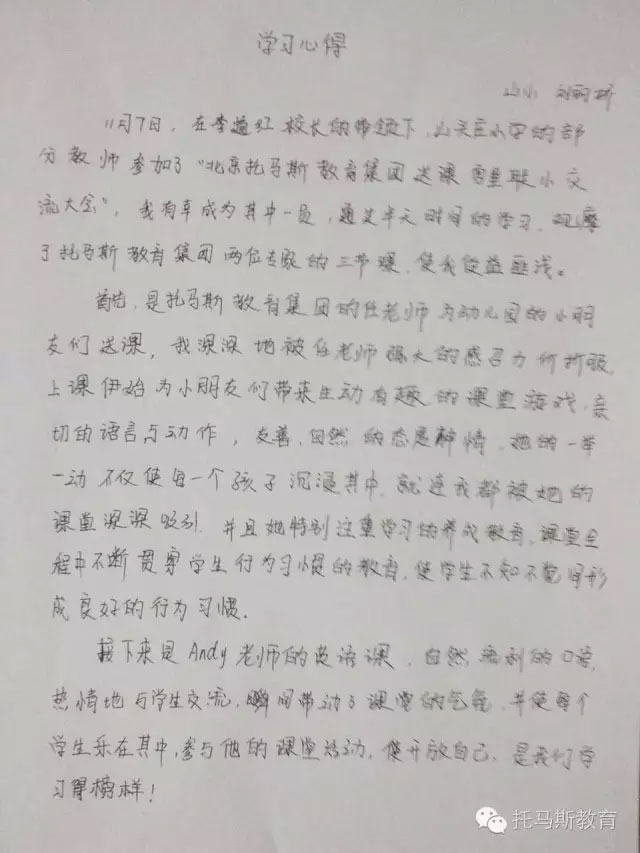 学习心得
山小 刘
11月7日，在李 红校长的带领下，山 庄小学的部
分教师参加了“北京托马斯教育集团送课 里联小交
流大会”，我有幸成为其中一员，通过半天时间的学习，观摩
了托马斯教育集团两位专家的三节课，使我受益匪浅。
首先，是托马斯教育集团的任老师为幼儿园的小朋
友们送课，我深深地被任老师强大的感召力所折服，
上课伊始为小朋友们带来生动有趣的课堂游戏，亲
切的语言与动作，友善、自然的态度神情，她的一举
一动不仅使每一个孩子沉浸其中，就连我都被她的
课堂深深吸引。并且她特别注重学习的养成教育，课堂全
程中不断贯穿学生行为习惯的教育，使学生不知不觉得形
成良好的行为习惯。
接下来是Andy老师的英语课，自然流利的口语，
热情地与学生交流，瞬间带动了课堂的气氛，并使每个
学生乐在其中，参与他的课堂活动，使开放自己，是我们学
习得榜样！
托马斯教育